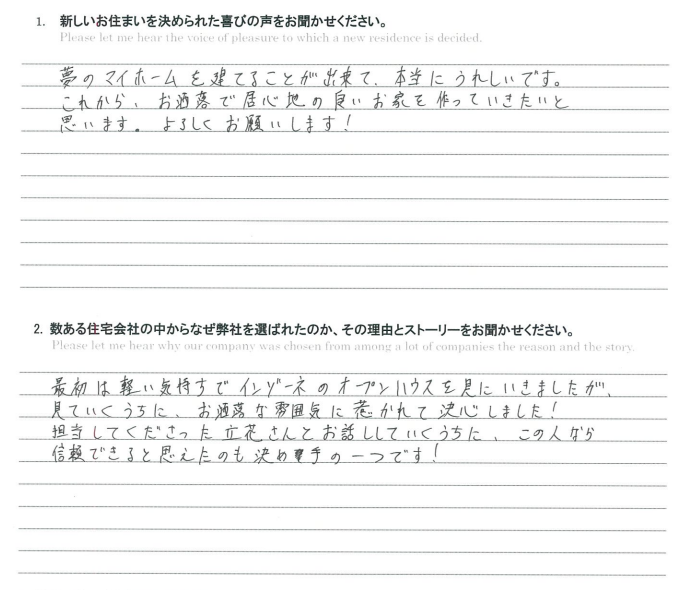 1. 新しいお住まいを決められた喜びの声をお聞かせください。
Please let me hear the voice of pleasure to which a new residence is decided.
夢のマイホームを建てることが出来て、本当にうれしいです。
これから、お洒落で居心地の良いお家を作っていきたいと
思います。よろしくお願いします!
2. 数ある住宅会社の中からなぜ弊社を選ばれたのか、その理由とストーリーをお聞かせください。
Please let me hear why our company was chosen from among a lot of companies the reason and the story.
最初は軽い気持ちでインゾーネのオープンハウスを見にいきましたが、
見ていくうちに、お洒落な雰囲気に惹かれて決心しました!
担当してくださった立花さんとお話ししていくうちに、この人なら
信頼できると思えたのも決め手の一つです!